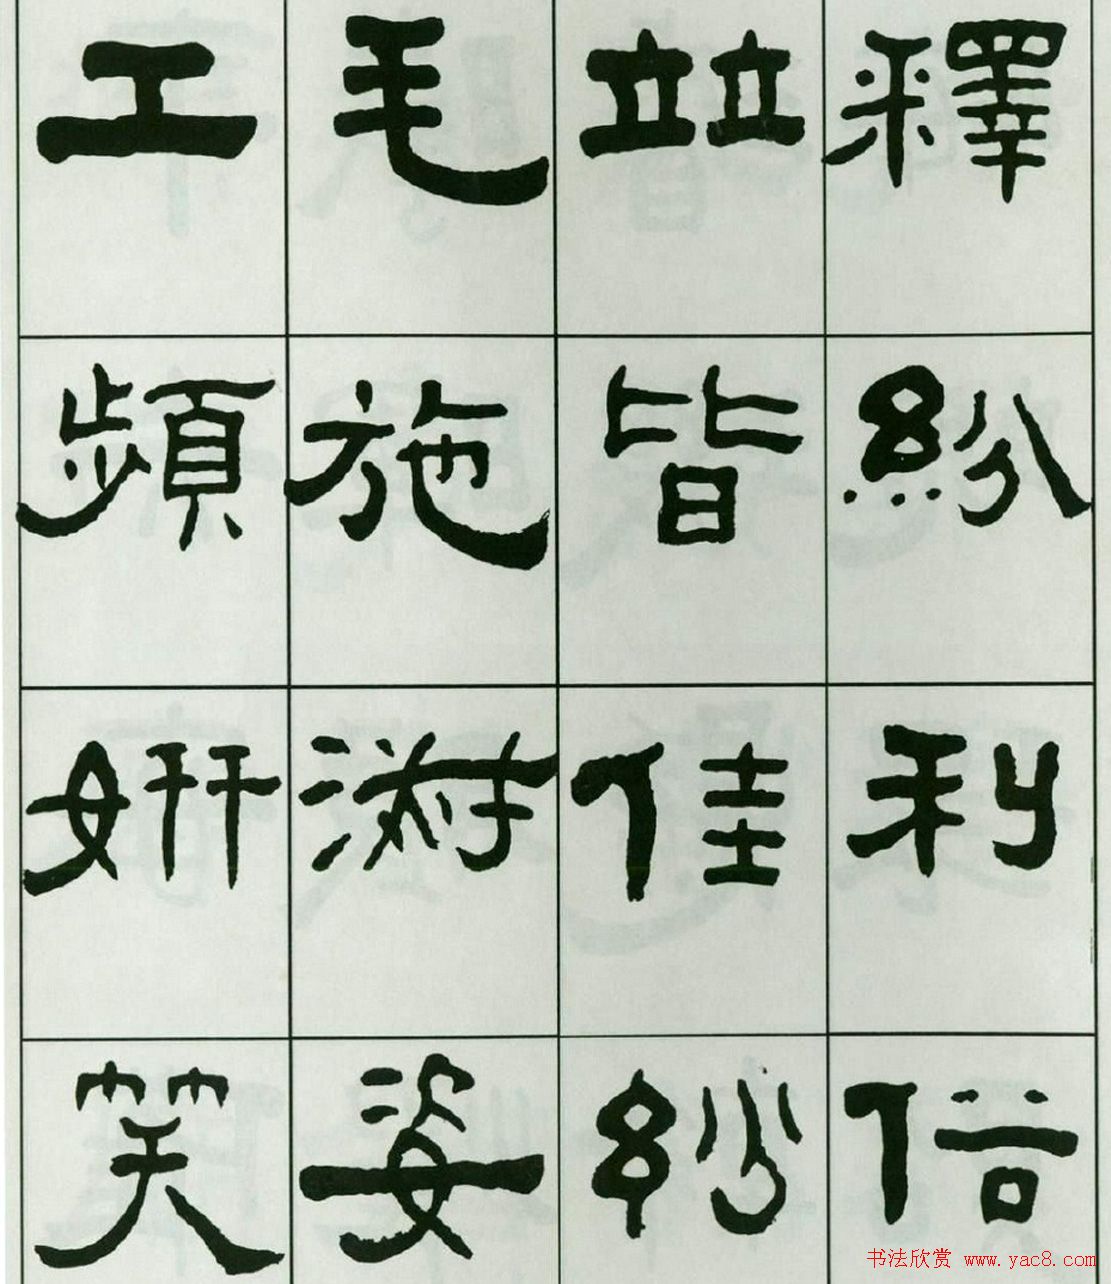 釋紛利俗
竝皆佳玅
毛施淑姿
工頻妍笑
书法欣赏 www.yac8.com